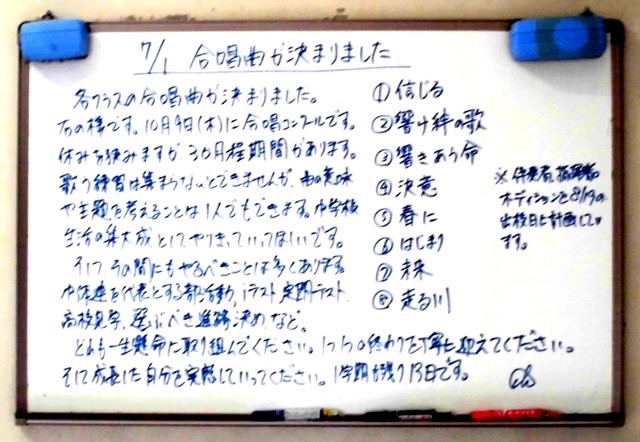 7/1 合唱曲が決まりました
各クラスの合唱曲が決まりました。
右の様です。10月9日(木)に合唱コンクールです。
休みも挟みますが、3ヵ月程期間があります。
歌う練習は集まらないとできませんが、曲の意味
や主題を考えることは1人でもできます。中学校
生活の集大成としてやりきっていってほしいです。
そして、その間にもやるべきことは多くあります。
中体連を代表とする部活動、テスト、定期テスト、
高校見学、選ぶべき進路決め、など。
どれも一生懸命に取り組んでください。1つ1つの終わりを丁寧に迎えてください。
そして成長した自分を実感していってください。1学期も残り13日です。
①信じる
②響け絆の歌
③響きあう命
④決意
⑤春に
⑥はじまり
⑦未来
⑧走る川
※伴奏者、指揮者
オーディションを8/19の
出校日に計画してい
ます。